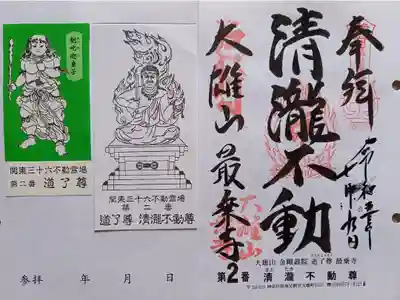 関東三十六不動霊場
第二番 道了尊
関東三十六不動霊場
第二番
道了尊 清瀧不動尊
参拝 年 月 日
奉拝
令和
清瀧不動
大雄山最乗寺
大雄山
道了尊 最乗寺
第2番 清瀧不動尊